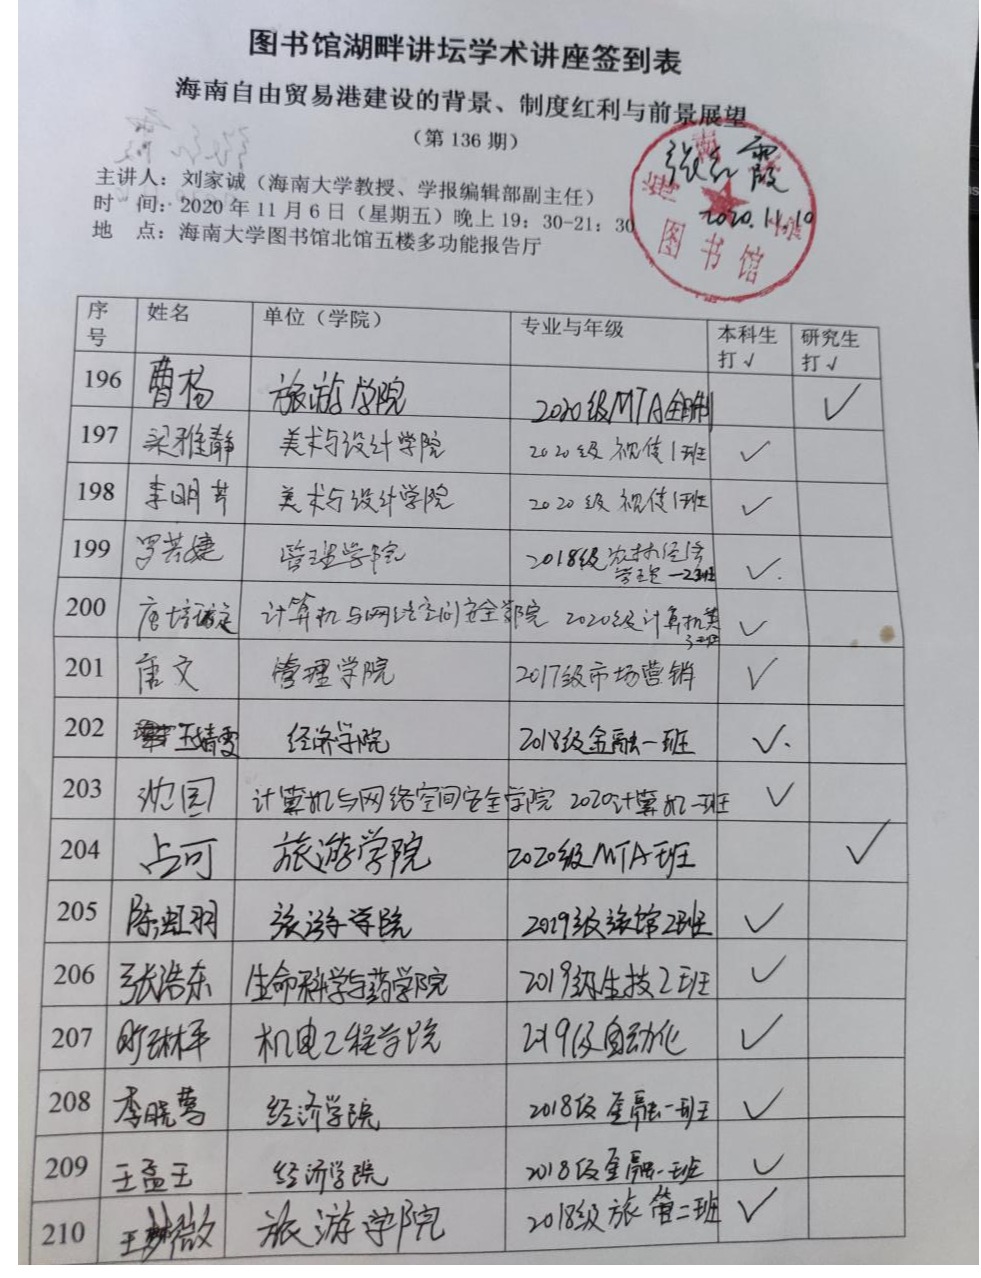 图书馆湖畔讲坛学术讲座签到表
海南自由贸易港建设的背景、制度红利与前景展望
（第 136 期）
主讲人：刘家诚（海南大学教授、学报编辑部副主任）
时 间：2020 年 11 月 6 日（星期五）晚上 19：30-21：30
地 点：海南大学图书馆北馆五楼多功能报告厅
霞
2020.11.10
图书馆
序号 姓名 单位（学院） 专业与年级 本科生打√ 研究生打√
196 曹杨 旅游学院 2020级MTA全日制 √
197 梁雅静 美术与设计学院 2020级 视传1班 √
198 李明芳 美术与设计学院 2020级 视传1班 √
199 罗芸婕 管理学院 2018级农林经济管理 一2班 √
200 唐培 计算机与网络空间安全学院 2020级计算机类 √
201 唐文 管理学院 2017级市场营销 √
202 王婧雯 经济学院 2018级金融一班 √
203 沈园 计算机与网络空间安全学院 2020计算机一班 √
204 占可 旅游学院 2020级MTA班 √
205 陈虹羽 旅游学院 2019级旅馆2班 √
206 张浩东 生命科学与药学院 2019级生技2班 √
207 琳平 机电工程学院 2019级自动化 √
208 李晓莺 经济学院 2018级金融一班 √
209 王孟王 经济学院 2018级金融一班 √
210 王梦微 旅游学院 2018级旅管二班 √